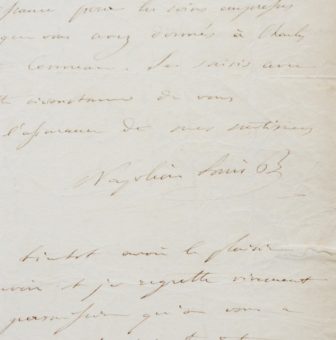 pour les soins empressés
que vous avez donnés à Charles
Je saisis avec
circonstance de vous
l'assurance de mes sentimens
Napoléon Louis B
bientôt avoir le plaisir
voir et je regrette vivement
permission qu'on vous a